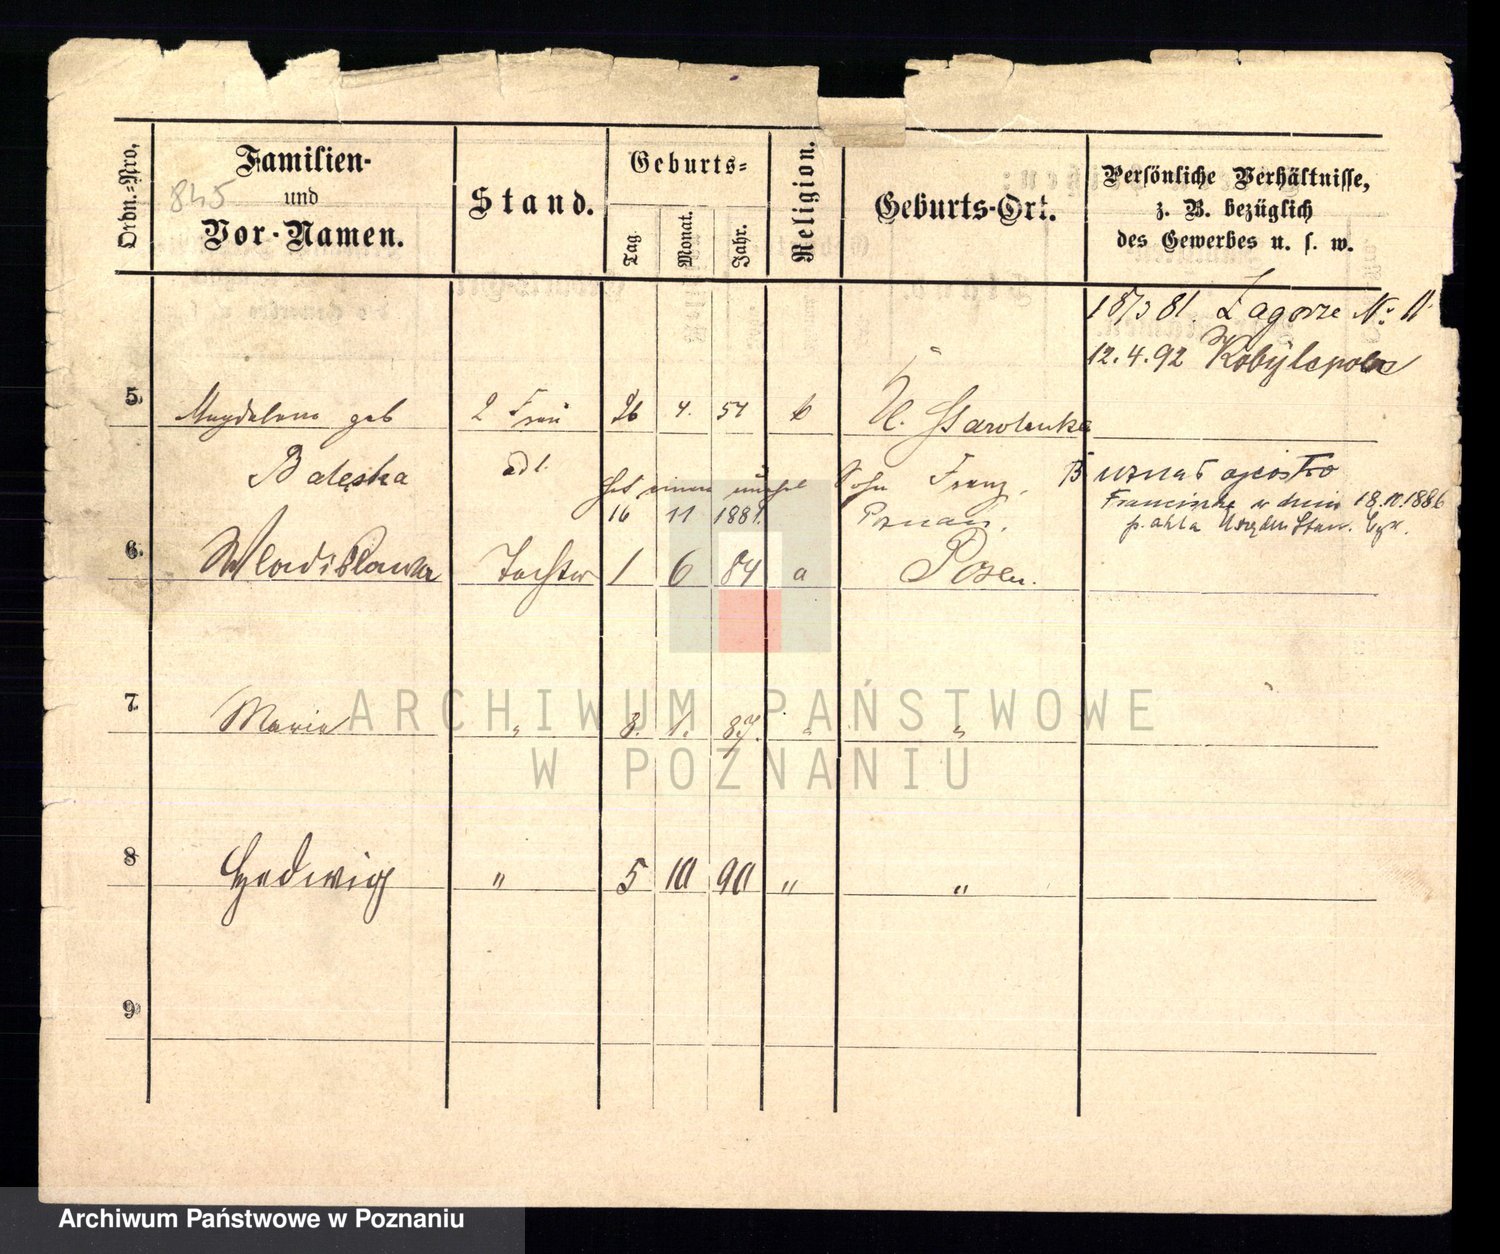 Ordn.=Nro.
Familien-
und
Vor-Namen.
845
Stand.
Geburts=
Tag.
Monat.
Jahr.
Religion.
Geburts-Ort.
Persönliche Verhältnisse,
z. B. bezüglich
des Gewerbes u. s. w.
18/3 81. Zagorze No 11
12.4.92 Kobylepole
5. Magdalena geb 2 Frau 26 4. 57 k Starolenka
Bateska
16 11 1881. Poznan.
Franciszka w dniu 18.11.1886
6. Wladislawa Tochter 1 6 84 a Posen.
7. Maria " 3. 1. 87. " "
8 Hedwig " 5 10 90 " "
9.
ARCHIWUM PAŃSTWOWE
W POZNANIU
Archiwum Państwowe w Poznaniu